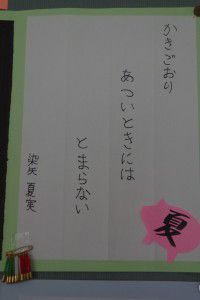 かきごおり
あついときには
とまらない
染矢 夏実
夏